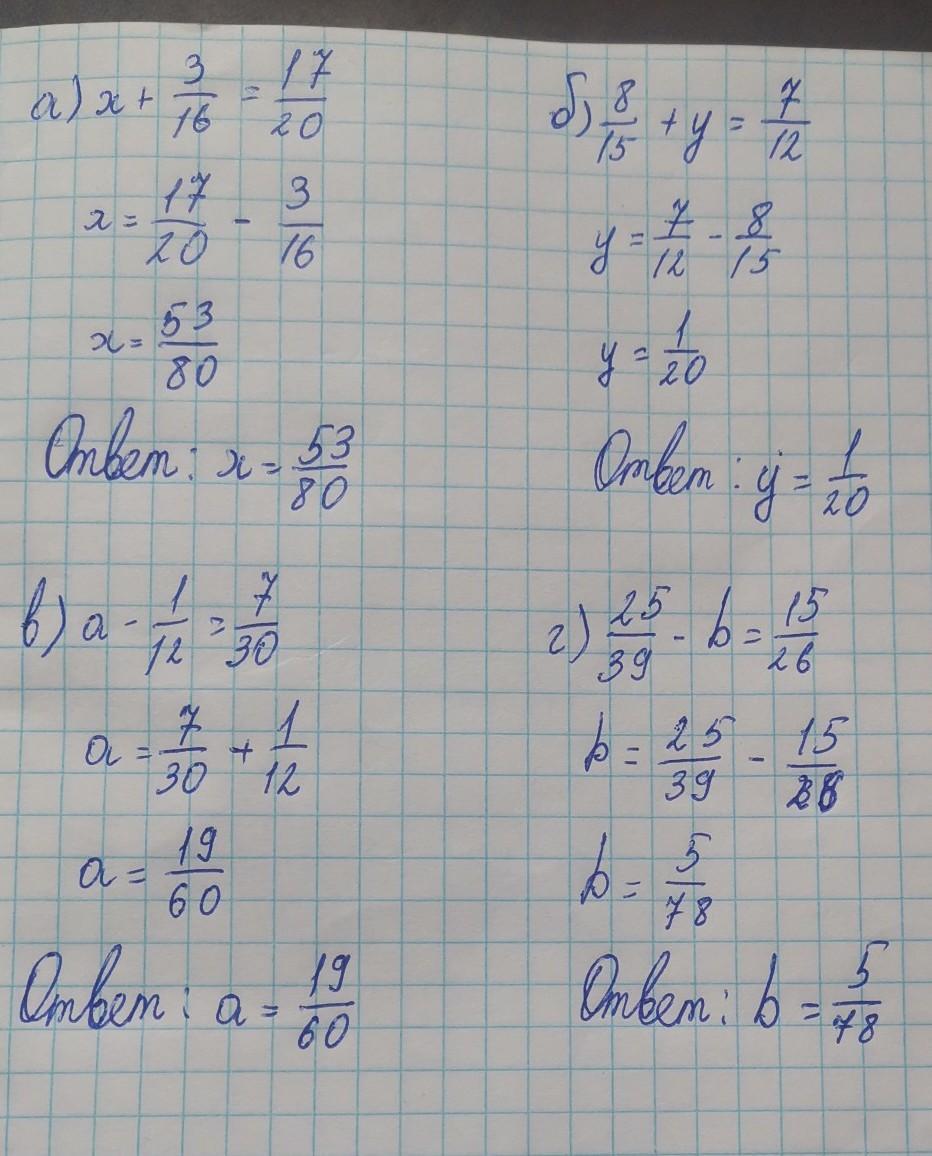 а) x + 3/16 = 17/20
x = 17/20 - 3/16
x = 53/80
Ответ: x = 53/80
б) 8/15 + y = 7/12
y = 7/12 - 8/15
y = 1/20
Ответ: y = 1/20
в) a - 1/12 = 7/30
a = 7/30 + 1/12
a = 19/60
Ответ: a = 19/60
г) 25/39 - b = 15/26
b = 25/39 - 15/26
b = 5/78
Ответ: b = 5/78